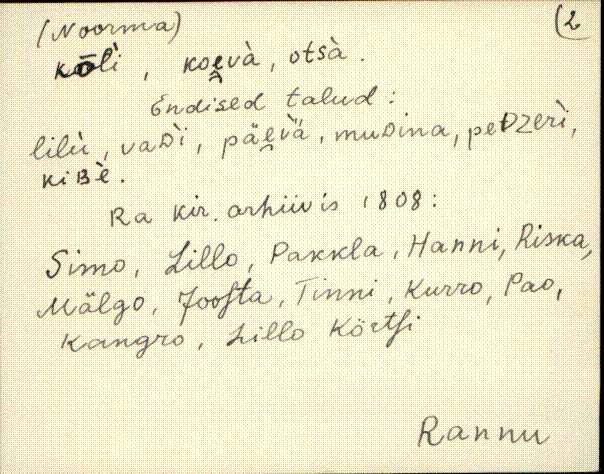 (Noorma) (2
kōlì, koe̯và, otsà.
Endised talud:
lilù, vaᴅì, päe̯vä̀, muᴅina, peᴅzerì,
kiʙè.
Ra kir. arhiivis 1808:
Simo, Lillo, Pakkla, Hanni, Riska,
Mälgo, Jooſta, Tinni, Kurro, Pao,
Kangro, Lillo Körtſi
Rannu